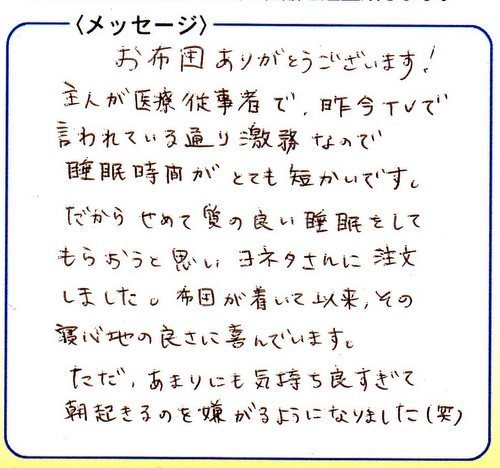 〈メッセージ〉
お布団ありがとうございます!
主人が医療従事者で、昨今TVで
言われている通り激務なので
睡眠時間がとても短かいです。
だからせめて質の良い睡眠をして
もらおうと思いヨネタさんに注文
しました。布団が着いて以来、その
寝心地の良さに喜んでいます。
ただ、あまりにも気持ち良すぎて
朝起きるのを嫌がるようになりました(笑)